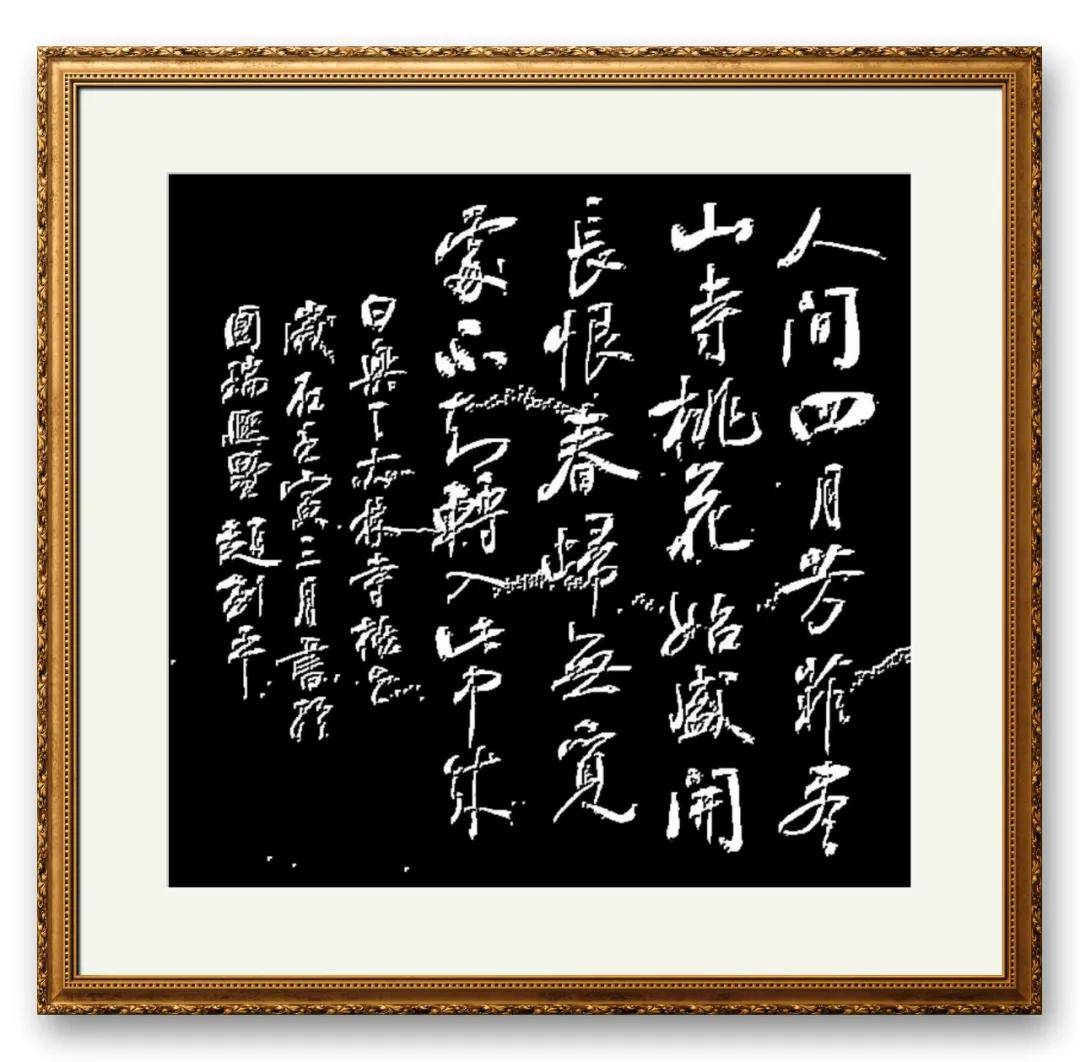 人間四月芳菲盡
山寺桃花始盛開
長恨春歸無覓
處不知轉入此中來
白樂天大林寺桃花
歲在壬寅三月書於
國瑞熙墅趙劍平